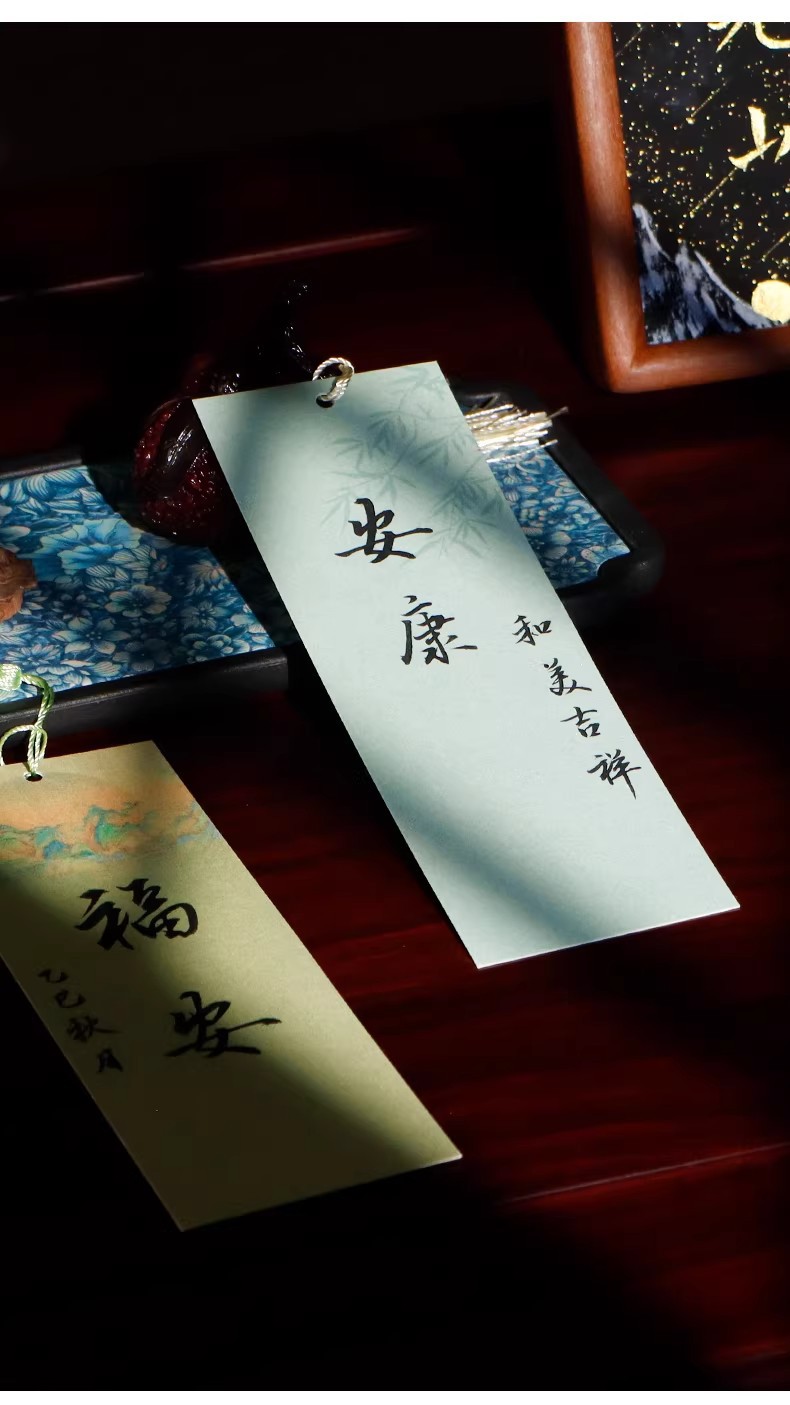 安康
和美吉祥
福安
乙巳秋月